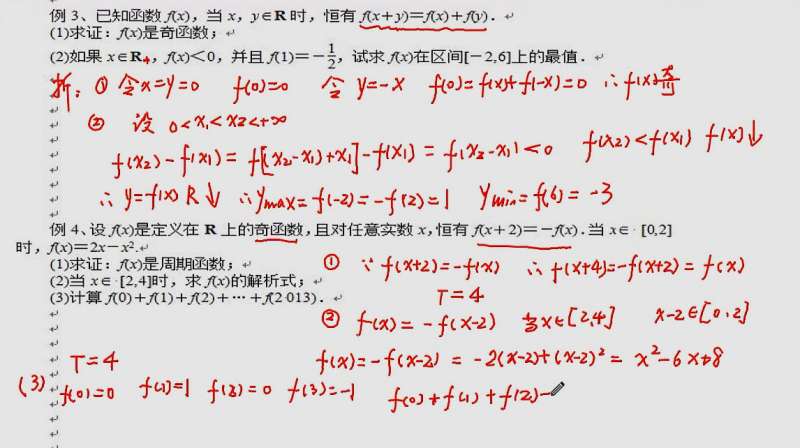 例 3、已知函数 f(x)，当 x，y∈R 时，恒有 f(x+y)=f(x)+f(y)．
(1)求证：f(x)是奇函数；
(2)如果 x∈R₊，f(x)＜0，并且 f(1)=－1/2，试求 f(x)在区间[－2,6]上的最值．
析：① 令x=y=0 f(0)=0 令 y=-x f(0)=f(x)+f(-x)=0 ∴f(x)是奇
② 设 0<x₁<x₂<+∞
f(x₂)-f(x₁)=f[(x₂-x₁)+x₁]-f(x₁)=f(x₂-x₁)<0 f(x₂)<f(x₁) f(x)↓
∴y=f(x) R↓ ∴ymax=f(-2)=-f(2)=1 ymin=f(6)=-3
例 4、设 f(x)是定义在 R 上的奇函数，且对任意实数 x，恒有 f(x＋2)=－f(x)．当 x∈[0,2]
时，f(x)=2x－x²．
(1)求证：f(x)是周期函数；
① ∵f(x+2)=-f(x) ∴f(x+4)=-f(x+2)=f(x)
(2)当 x∈[2,4]时，求 f(x)的解析式；
T=4
(3)计算 f(0)＋f(1)＋f(2)＋…＋f(2 013)．
② f(x)=-f(x-2) 当x∈[2,4] x-2∈[0,2]
f(x)=-f(x-2)=-2(x-2)+(x-2)²=x²-6x+8
T=4
(3) f(0)=0 f(1)=1 f(2)=0 f(3)=-1 f(0)+f(1)+f(2)-